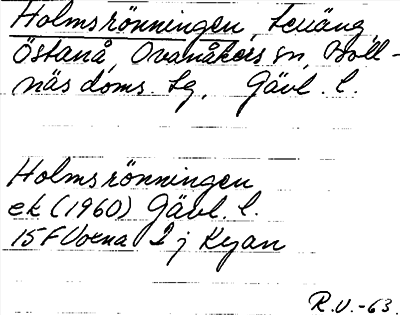 Holmsrönningen, teväng,
Östanå, Ovanåkers sn, Boll-
näs doms. tg, Gävl. l.
Holmsrönningen
ek (1960) Gävl. l.
15F Voxna 2 j Kyan
R.V.-63.